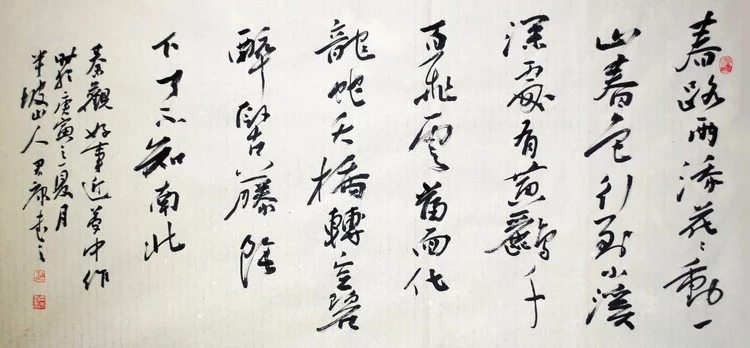 春路雨添花〻動一
山春色行到小溪
深處有黄鸝千
百飛雲當面化
龍蛇夭矯轉空碧
醉卧古藤陰
下了不知南北
秦觀好事近夢中作
時於庚寅之夏月
半坡山人康書之